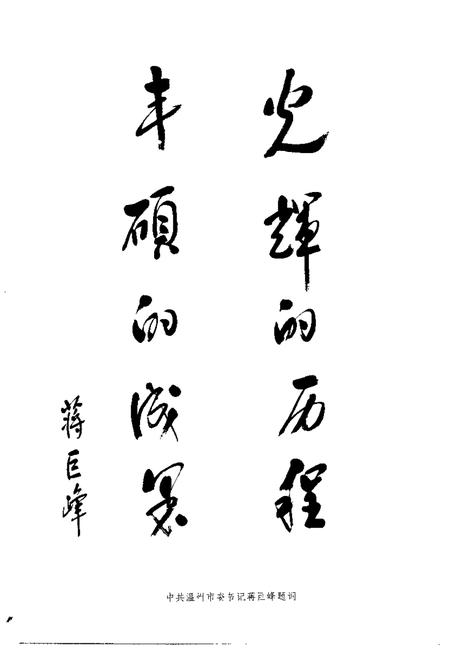 光輝的历程
丰硕的成果
蒋巨峰
中共温州市委书记蒋巨峰题词